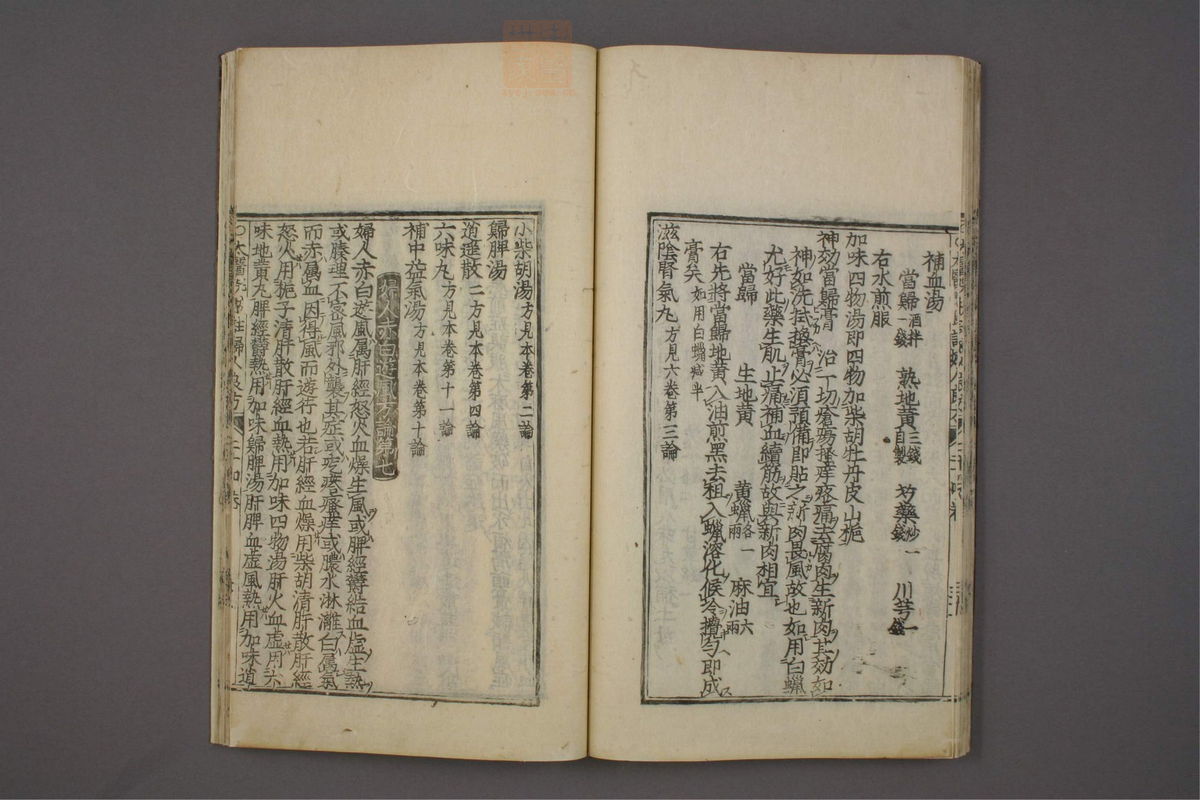 補血湯
當歸酒拌一錢 熟地黃三錢自製 芍藥炒一錢 川芎一錢
右水煎服
加味四物湯即四物加柴胡牡丹皮山梔
神効當歸膏 治一切瘡瘍搔痒疼痛去腐肉生新肉其効如
神如洗拭換膏必須預備即貼之新肉畏風故也如用白蠟
尤好此藥生肌止痛補血續筋故與新肉相宜
當歸 生地黃 黃蠟各一兩 麻油六兩
右先將當歸地黃入油煎黑去粗入蠟溶化候冷攪勻即成
膏矣如用白蠟減半
滋陰腎氣丸方見六卷第三論
小柴胡湯方見本卷第二論
歸脾湯
逍遙散二方見本卷第四論
六味丸方見本卷第十一論
補中益氣湯方見本卷第十論
婦人赤白遊風方論第七
婦人赤白遊風属肝經怒火血燥生風或脾經鬱結血虛生熱
或腠理不密風邪外襲其症或疙瘩瘙痒或膿水淋灕白属氣
而赤属血因得風而遊行也若肝經血燥用柴胡清肝散肝經
怒火用梔子清肝散肝經血熱用加味四物湯肝火血虛用六
味地黃丸脾經鬱熱用加味歸脾湯肝脾血虛風熱用加味逍